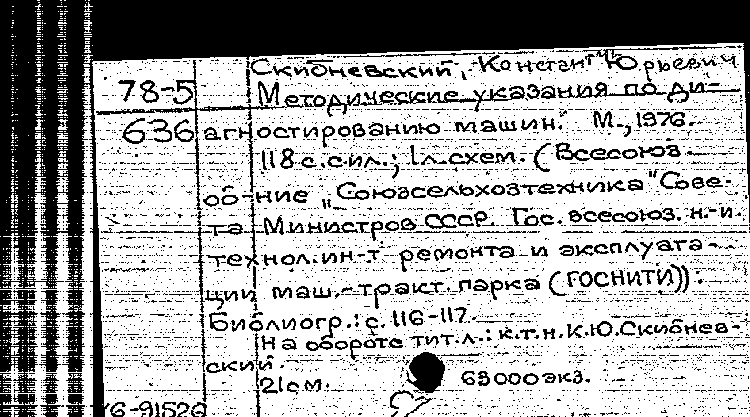 Скибневский, Константин Юрьевич
78-5 Методические указания по ди-
636 агностированию машин. М., 1976.
118 с. с ил.; 1 л. схем. (Всесоюз.
об-ние "Союзсельхозтехника" Сове-
та Министров СССР. Гос. всесоюз. н.-и.
технол. ин-т ремонта и эксплуата-
ции маш.-тракт. парка (ГОСНИТИ)).
Библиогр.: с. 116-117.
На обороте тит. л.: к.т.н. К.Ю. Скибнев-
ский.
21 см. 63000 экз.
76-91526